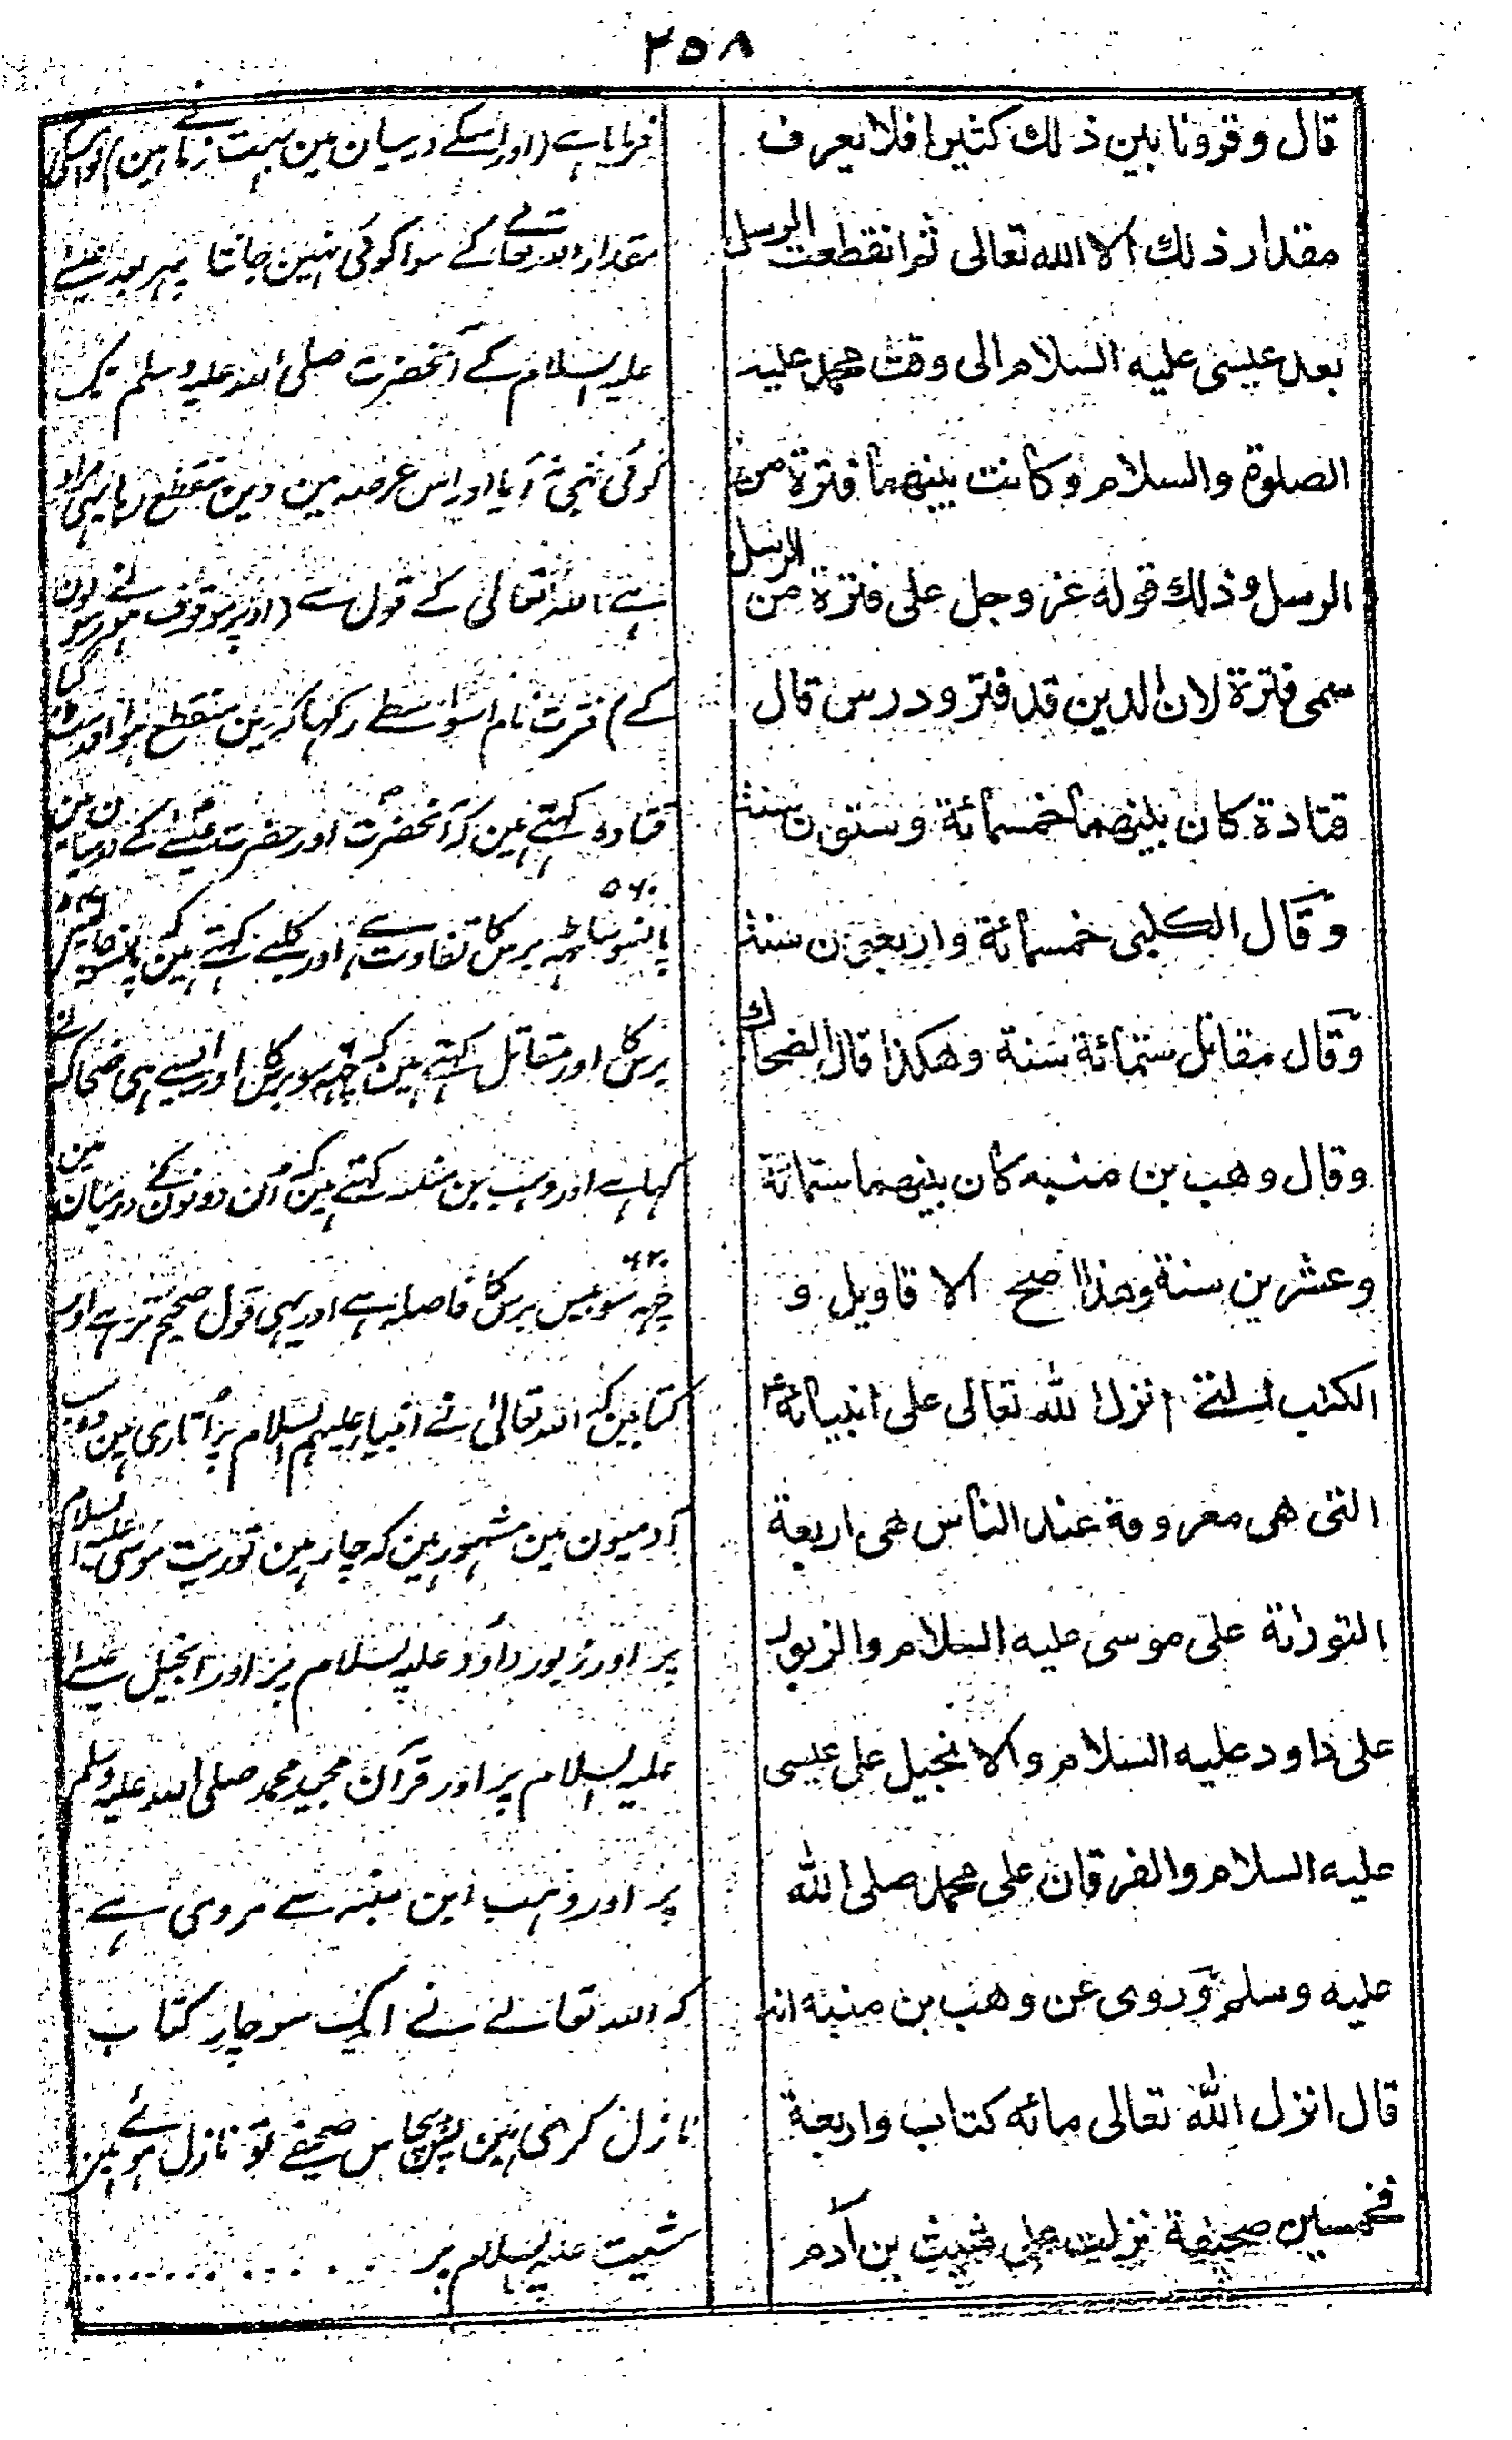 ٢٥٨
قال وقرونا بين ذلك كثيرا فلا يعرف
مقدار ذلك الا الله تعالى ثم انقطعت الرسل
بعد عيسى عليه السلام الى وقت محمد عليه
الصلوة والسلام وكانت بينهما فترة من
الرسل وذلك قوله عز وجل على فترة من الرسل
سمى فترة لان الدين قد فتر ودرس قال
قتادة كان بينهما خمسمائة وستون سنة
وقال الكلبى خمسمائة واربعون سنة
وقال مقاتل ستمائة سنة وهكذا قال الضحاك
وقال وهب بن منبه كان بينهما ستمائة
وعشرين سنة وهذا اصح الاقاويل و
الكتب التے انزل الله تعالى على انبيائه
التى هى معروفة عند الناس هى اربعة
التوراة على موسى عليه السلام والزبور
على داود عليه السلام والانجيل على عيسى
عليه السلام والفرقان على محمد صلى الله
عليه وسلم وروى عن وهب بن منبه انه
قال انزل الله تعالى مائه كتاب واربعة
فخمسين صحيفة نزلت على شيث بن آدم
فرمایا ہے (اور اسکے درمیان مین بہت زمانے ہین) تو اسکی
مقدار اللہ تعالے کے سوا کوئی نہین جانتا پہر بعد عیسے
علیہ السلام کے آنحضرت صلی اللہ علیہ وسلم تک
کوئی نبی نہ آیا اور اس عرصہ مین دین منقطع رہا یہی مراد
ہے اللہ تعالی کے قول سے (اوپر موقوف ہونے رسولون
کے) فترت نام اسواسطے رکہا کہ دین منقطع ہوا اور مٹ گیا
قتادہ کہتے ہین کہ آنحضرتؐ اور حضرت عیسٰے کے درمیان مین
پانسو ساٹہہ ٥٦٠ برس کا تفاوت ہے اور کلبے کہتے ہین کہ پانسو چالیس ٥٤٠
برس کا اور مقاتل کہتے ہین کہ چہہ سو برس کا اور ایسے ہی ضحاک نے
کہا ہے اور وہب بن منبہ کہتے ہین کہ اُن دونون کے درمیان مین
چہہ سو بیس ٦٢٠ برس کا فاصلہ ہے اور یہی قول صحیح تر ہے اور
کتابین کہ اللہ تعالیٰ نے انبیاء علیہم السلام پر اُتاری ہین وہ سب
آدمیون مین مشہور ہین کہ چار ہین توریت موسی علیہ السلام
پر اور زبور داؤد علیہ السلام پر اور انجیل عیسے
علیہ السلام پر اور قرآن مجید محمد صلی اللہ علیہ وسلم
پر اور وہب ابن منبہ سے مروی ہے
کہ اللہ تعالے نے ایک سو چار کتاب
نازل کری ہین پس پچاس صحیفے تو نازل ہوئے ہین
شیث علیہ السلام پر